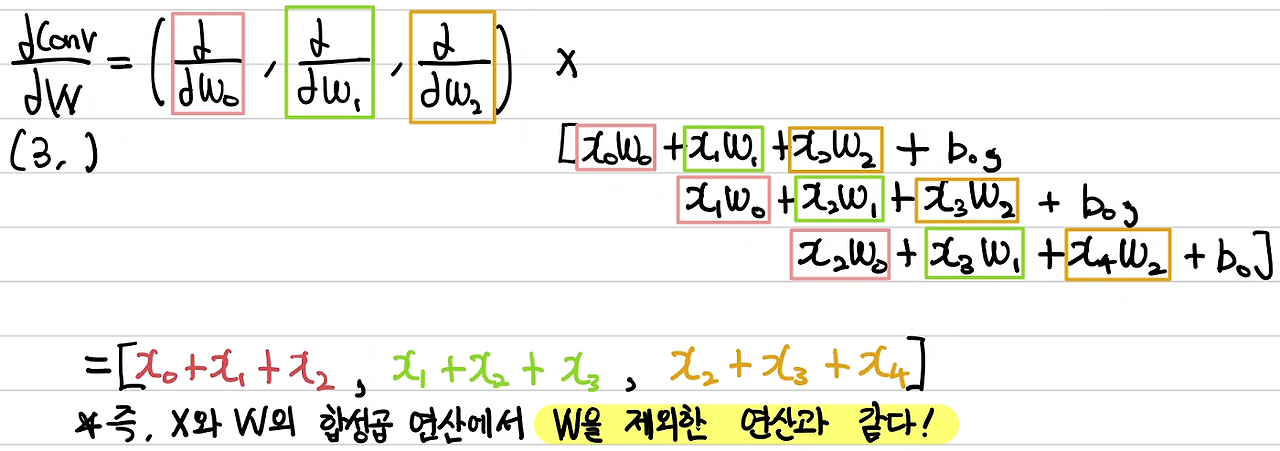 dConv/dW = ( d/dW₀ , d/dW₁ , d/dW₂ ) x
(3, )
[x₀W₀ + x₁W₁ + x₂W₂ + b₀,
x₁W₀ + x₂W₁ + x₃W₂ + b₀,
x₂W₀ + x₃W₁ + x₄W₂ + b₀]
= [x₀+x₁+x₂ , x₁+x₂+x₃ , x₂+x₃+x₄]
* 즉, X와 W의 합성곱 연산에서 W을 제외한 연산과 같다!